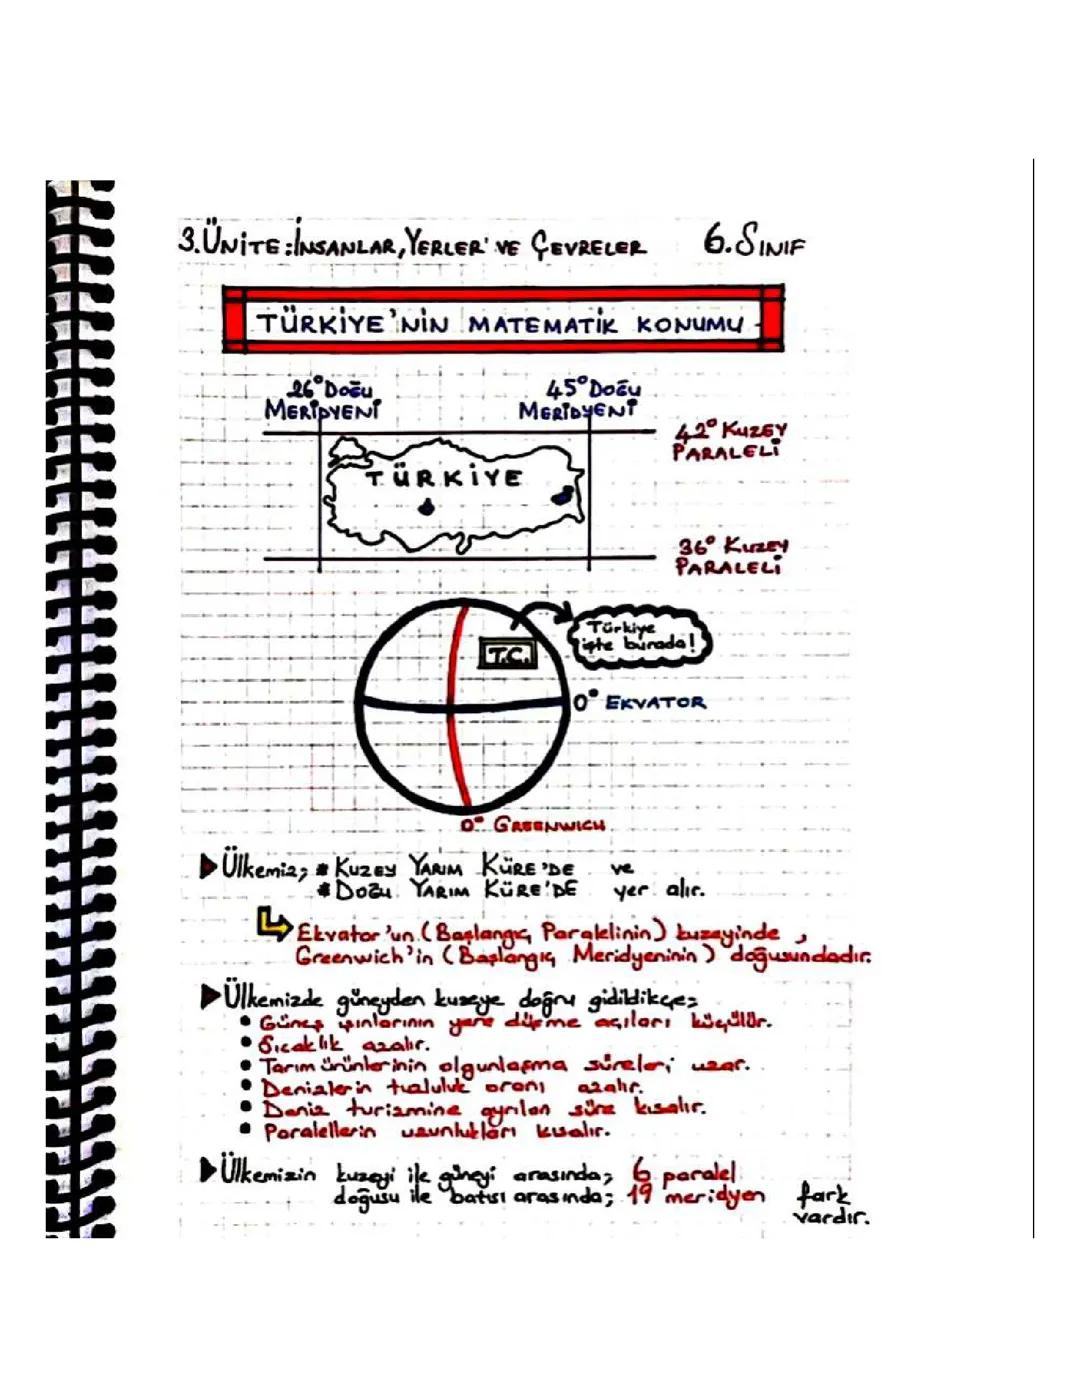 3.ÜNİTE: İNSANLAR, YERLER VE ÇEVRELER 6.SINIF
TÜRKİYE'NİN MATEMATİK KONUMU
26° DOĞU MERİDYENİ
45° DOĞU MERİDYENİ
42° KUZEY PARALELİ
TÜRKİYE
36° KUZEY PARALELİ
Türkiye
işte burada!
T.C.
0° EKVATOR
0° GREENWICH
Ülkemiz; * KUZEY YARIM KÜRE'DE ve
* DOĞU YARIM KÜRE'DE yer alır.
Ekvator'un (Başlangıç Paralelinin) kuzeyinde,
Greenwich'in (Başlangıç Meridyeninin) doğusundadır.
Ülkemizde güneyden kuzeye doğru gidildikçe;
• Güneş ışınlarının yere düşme açıları küçülür.
• Sıcaklık azalır.
• Tarım ürünlerinin olgunlaşma süreleri uzar.
• Denizlerin tuzluluk oranı azalır.
• Deniz turizmine ayrılan süre kısalır.
• Paralellerin uzunlukları kısalır.
Ülkemizin kuzeyi ile güneyi arasında; 6 paralel
doğusu ile batısı arasında; 19 meridyen fark
vardır.